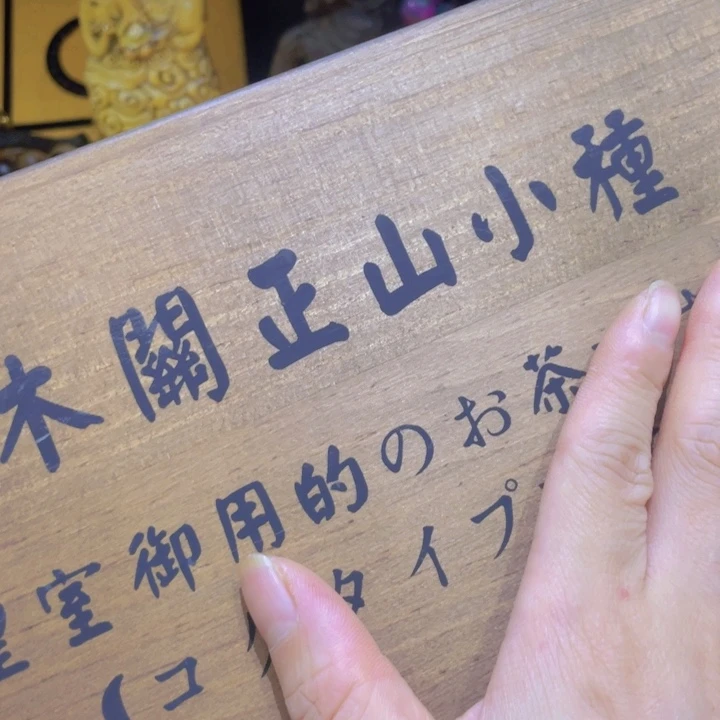 木關正山小種
皇室御用的のお茶
(コ タイプ